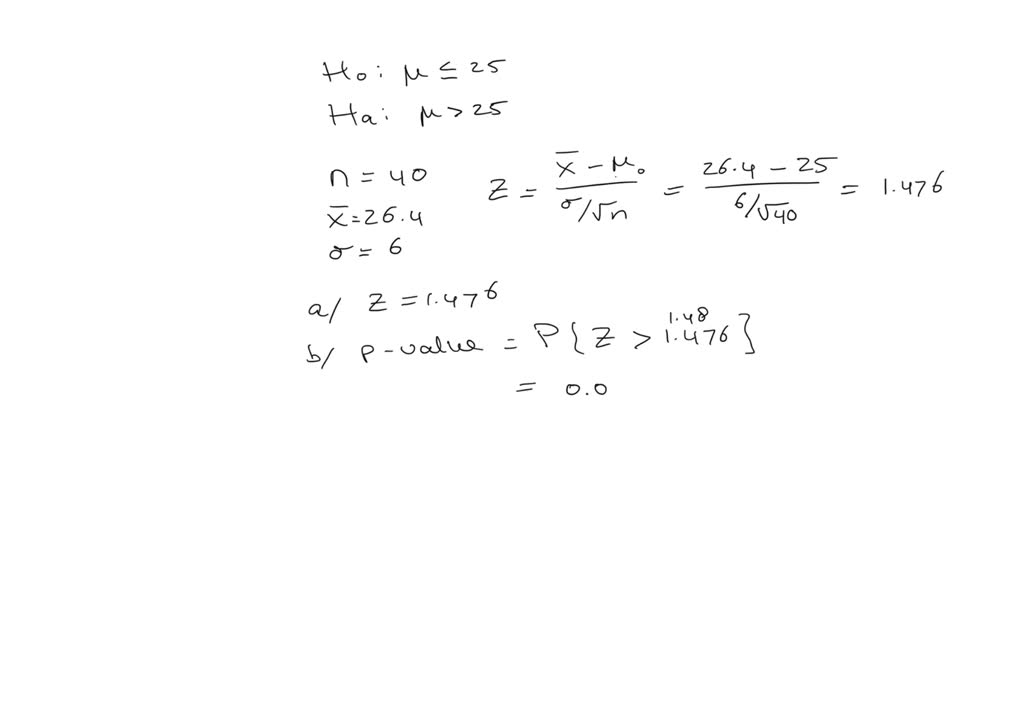 Ho: μ ≤ 25
Ha: μ > 25
n = 40
x̄ = 26.4
σ = 6
Z = (x̄ − μ₀) / (σ/√n) = (26.4 − 25) / (6/√40) = 1.476
a/ Z = 1.476
1.48
b/ P-value = P{Z > 1.476}
= 0.0